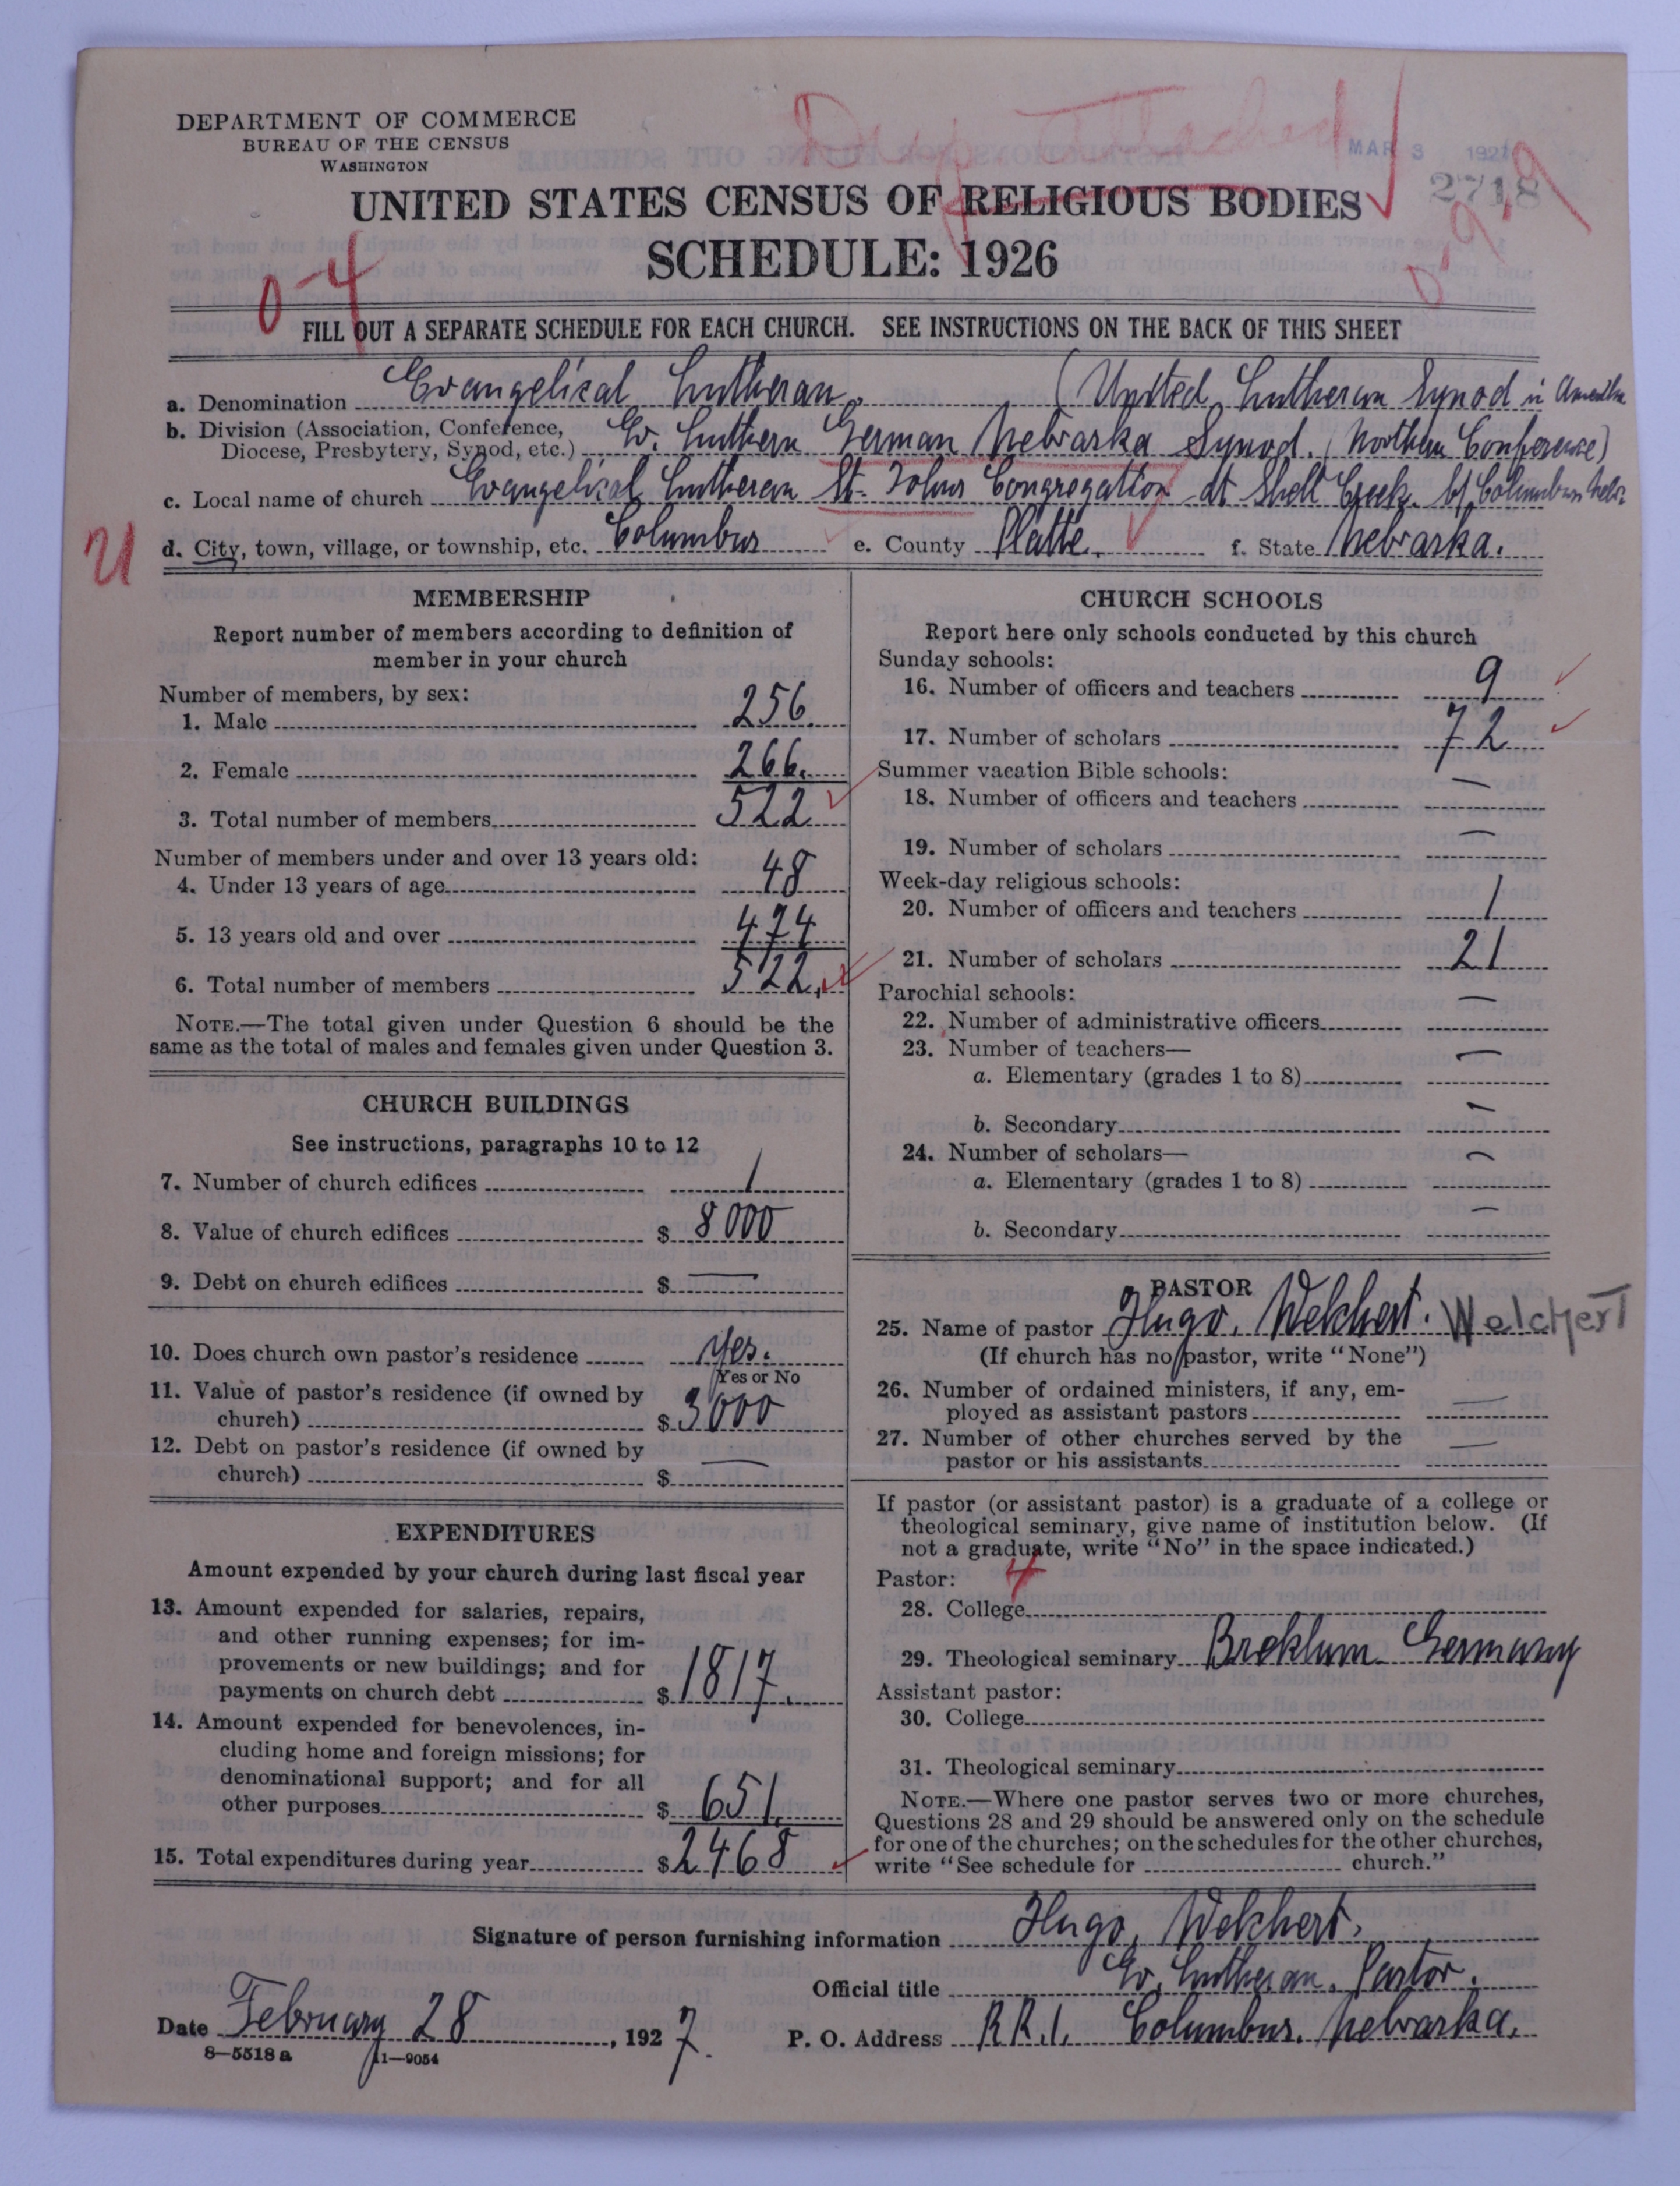 DEPARTMENT OF COMMERCE
BUREAU OF THE CENSUS
WASHINGTON
Dup Attached
MAR 3 1927
2718
UNITED STATES CENSUS OF RELIGIOUS BODIES
SCHEDULE: 1926
0-4
FILL OUT A SEPARATE SCHEDULE FOR EACH CHURCH. SEE INSTRUCTIONS ON THE BACK OF THIS SHEET
a. Denomination Evangelical Lutheran. (United Lutheran Synod in America
b. Division (Association, Conference, Diocese, Presbytery, Synod, etc.) Ev. Luthern German Nebraska Synod. (Northern Conference)
c. Local name of church Evangelical Lutheran St. Johns Congregation at Shell Creek. b/ Columbus Nebr.
d. City, town, village, or township, etc. Columbus e. County Platte. f. State Nebraska.
MEMBERSHIP
Report number of members according to definition of
member in your church
Number of members, by sex:
1. Male 256.
2. Female 266.
3. Total number of members 522
Number of members under and over 13 years old:
4. Under 13 years of age 48
5. 13 years old and over 474
6. Total number of members 522.
NOTE.—The total given under Question 6 should be the
same as the total of males and females given under Question 3.
CHURCH BUILDINGS
See instructions, paragraphs 10 to 12
7. Number of church edifices 1
8. Value of church edifices $ 8000
9. Debt on church edifices $ —
10. Does church own pastor's residence Yes.
Yes or No
11. Value of pastor's residence (if owned by
church) $ 3000
12. Debt on pastor's residence (if owned by
church) $ —
EXPENDITURES
Amount expended by your church during last fiscal year
13. Amount expended for salaries, repairs,
and other running expenses; for im-
provements or new buildings; and for
payments on church debt $ 1817.
14. Amount expended for benevolences, in-
cluding home and foreign missions; for
denominational support; and for all
other purposes $ 651.
15. Total expenditures during year $ 2468
CHURCH SCHOOLS
Report here only schools conducted by this church
Sunday schools:
16. Number of officers and teachers 9
17. Number of scholars 72
Summer vacation Bible schools:
18. Number of officers and teachers —
19. Number of scholars —
Week-day religious schools:
20. Number of officers and teachers 1
21. Number of scholars 21
Parochial schools:
22. Number of administrative officers —
23. Number of teachers—
a. Elementary (grades 1 to 8) —
b. Secondary —
24. Number of scholars—
a. Elementary (grades 1 to 8) —
b. Secondary —
PASTOR
25. Name of pastor Hugo. Welchert. Welchert
(If church has no pastor, write "None")
26. Number of ordained ministers, if any, em-
ployed as assistant pastors —
27. Number of other churches served by the
pastor or his assistants —
If pastor (or assistant pastor) is a graduate of a college or
theological seminary, give name of institution below. (If
not a graduate, write "No" in the space indicated.)
Pastor: 4
28. College
29. Theological seminary Breklum Germany
Assistant pastor:
30. College
31. Theological seminary
NOTE.—Where one pastor serves two or more churches,
Questions 28 and 29 should be answered only on the schedule
for one of the churches; on the schedules for the other churches,
write "See schedule for church."
Signature of person furnishing information Hugo, Welchert.
Official title Ev. Lutheran. Pastor.
Date February 28, 1927. P. O. Address R.R.1. Columbus. Nebraska.
8—5518 a 11—9054